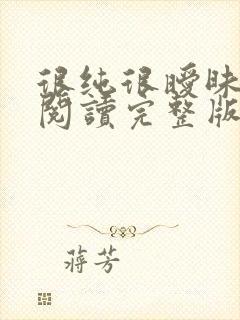 很纯很曖昧
閱讀完整版
蔣芳